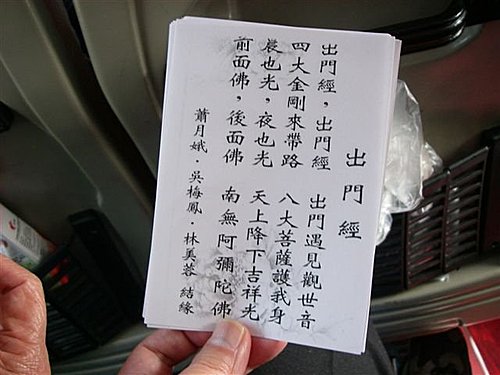 出門經
出門經，出門經　出門遇見觀世音
四大金剛來帶路　八大菩薩護我身
晨也光，夜也光　天上降下吉祥光
前面佛，後面佛　南無阿彌陀佛
蕭月娥．吳梅鳳．林美蓉 結緣